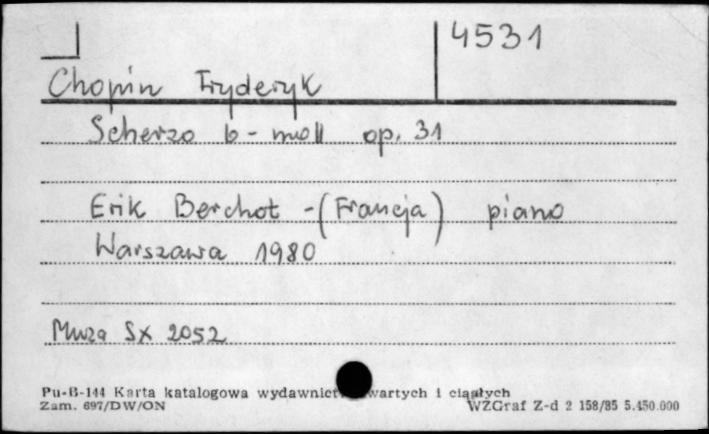 4531
Chopin Fryderyk
Scherzo b-moll op. 31
Erik Berchot - (Francja) piano
Warszawa 1980
Muza SX 2052
Pu-B-144 Karta katalogowa wydawnict wartych i ciągłych
Zam. 697/DW/ON WZGraf Z-d 2 158/85 5.450.000